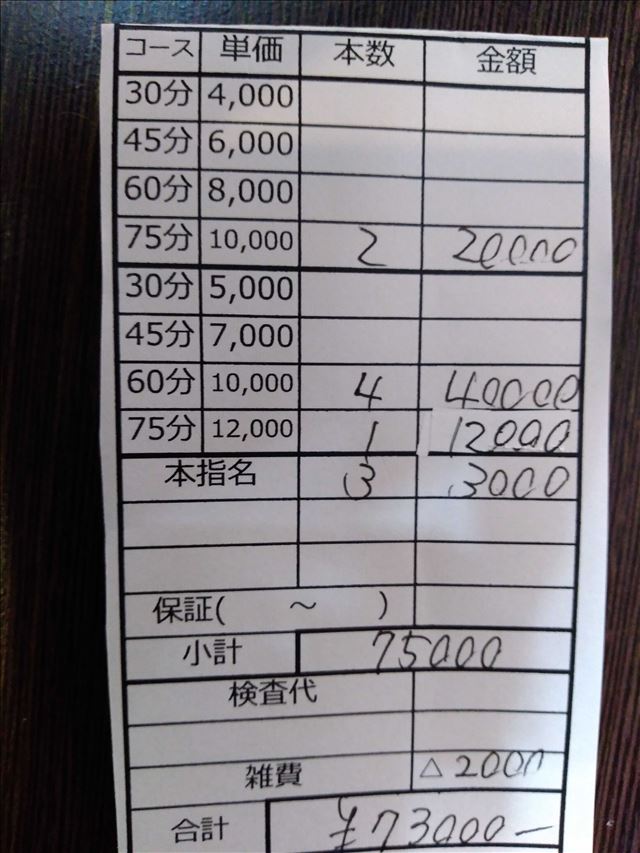 コース 単価 本数 金額
30分 4,000
45分 6,000
60分 8,000
75分 10,000 2 20000
30分 5,000
45分 7,000
60分 10,000 4 40000
75分 12,000 1 12000
本指名 3 3000
保証( ～ )
小計 75000
検査代
雑費 △2000
合計 ¥73000-